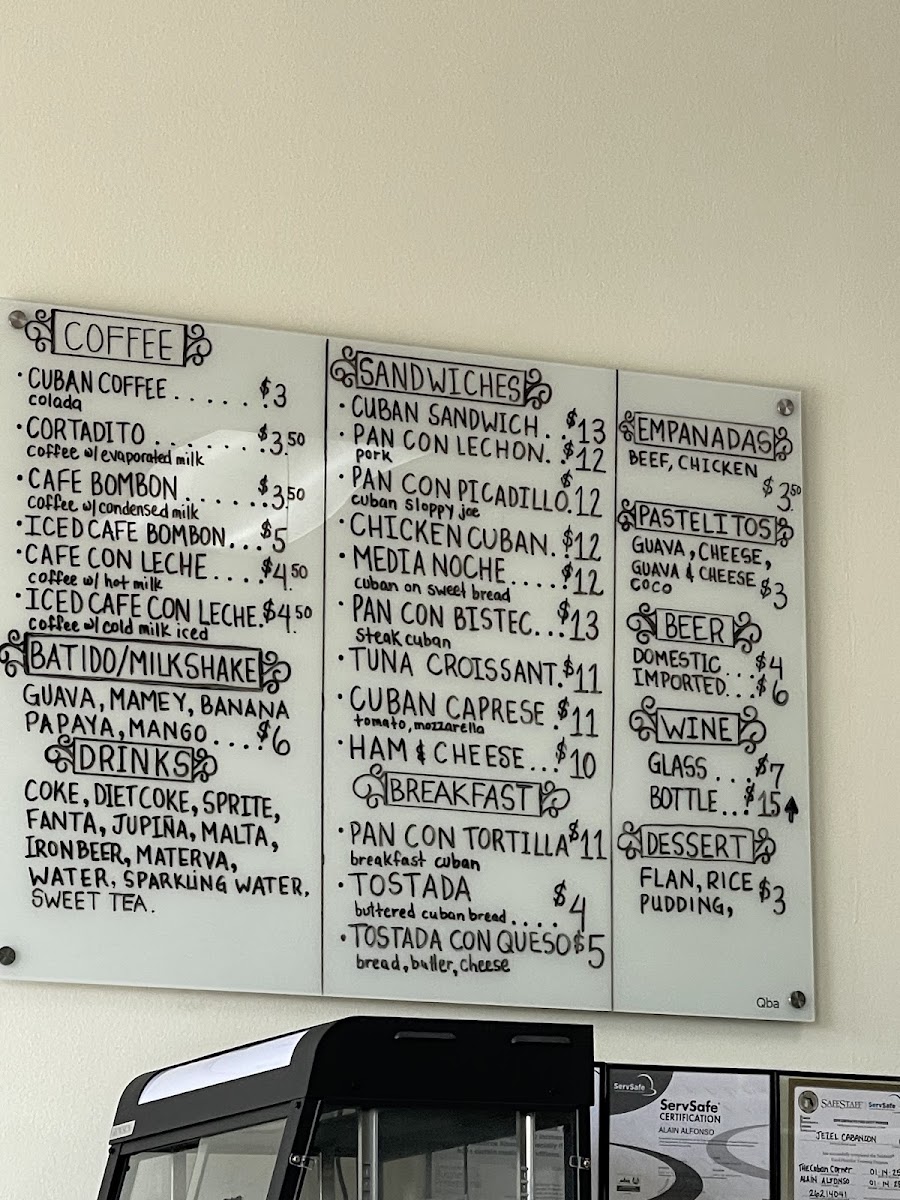 COFFEE
· CUBAN COFFEE ...... $3
colada
· CORTADITO ....... $3.50
coffee w/ evaporated milk
· CAFE BOMBON ...... $3.50
coffee w/ condensed milk
· ICED CAFE BOMBON... $5
· CAFE CON LECHE .... $4.50
coffee w/ hot milk
· ICED CAFE CON LECHE. $4.50
coffee w/ cold milk iced
BATIDO/MILKSHAKE
GUAVA, MAMEY, BANANA
PAPAYA, MANGO .... $6
DRINKS
COKE, DIET COKE, SPRITE,
FANTA, JUPIÑA, MALTA,
IRONBEER, MATERVA,
WATER, SPARKLING WATER,
SWEET TEA.
SANDWICHES
· CUBAN SANDWICH .. $13
· PAN CON LECHON. $12
pork
· PAN CON PICADILLO. $12
cuban sloppy joe
· CHICKEN CUBAN. $12
· MEDIA NOCHE .... $12
cuban on sweet bread
· PAN CON BISTEC... $13
steak cuban
· TUNA CROISSANT. $11
· CUBAN CAPRESE . $11
tomato, mozzarella
· HAM & CHEESE... $10
BREAKFAST
· PAN CON TORTILLA $11
breakfast cuban
· TOSTADA $4
buttered cuban bread ....
· TOSTADA CON QUESO $5
bread, butter, cheese
EMPANADAS
BEEF, CHICKEN
$3.50
PASTELITOS
GUAVA, CHEESE,
GUAVA & CHEESE $3
COCO
BEER
DOMESTIC ... $4
IMPORTED... $6
WINE
GLASS ... $7
BOTTLE .. $15 ↑
DESSERT
FLAN, RICE $3
PUDDING,
Qba
ServSafe
ServSafe®
CERTIFICATION
ALAIN ALFONSO
SAFESTAFF
ServSafe
JEZEL CABANZON
The Cuban Corner 01·14·25
ALAIN ALFONSO
26214041